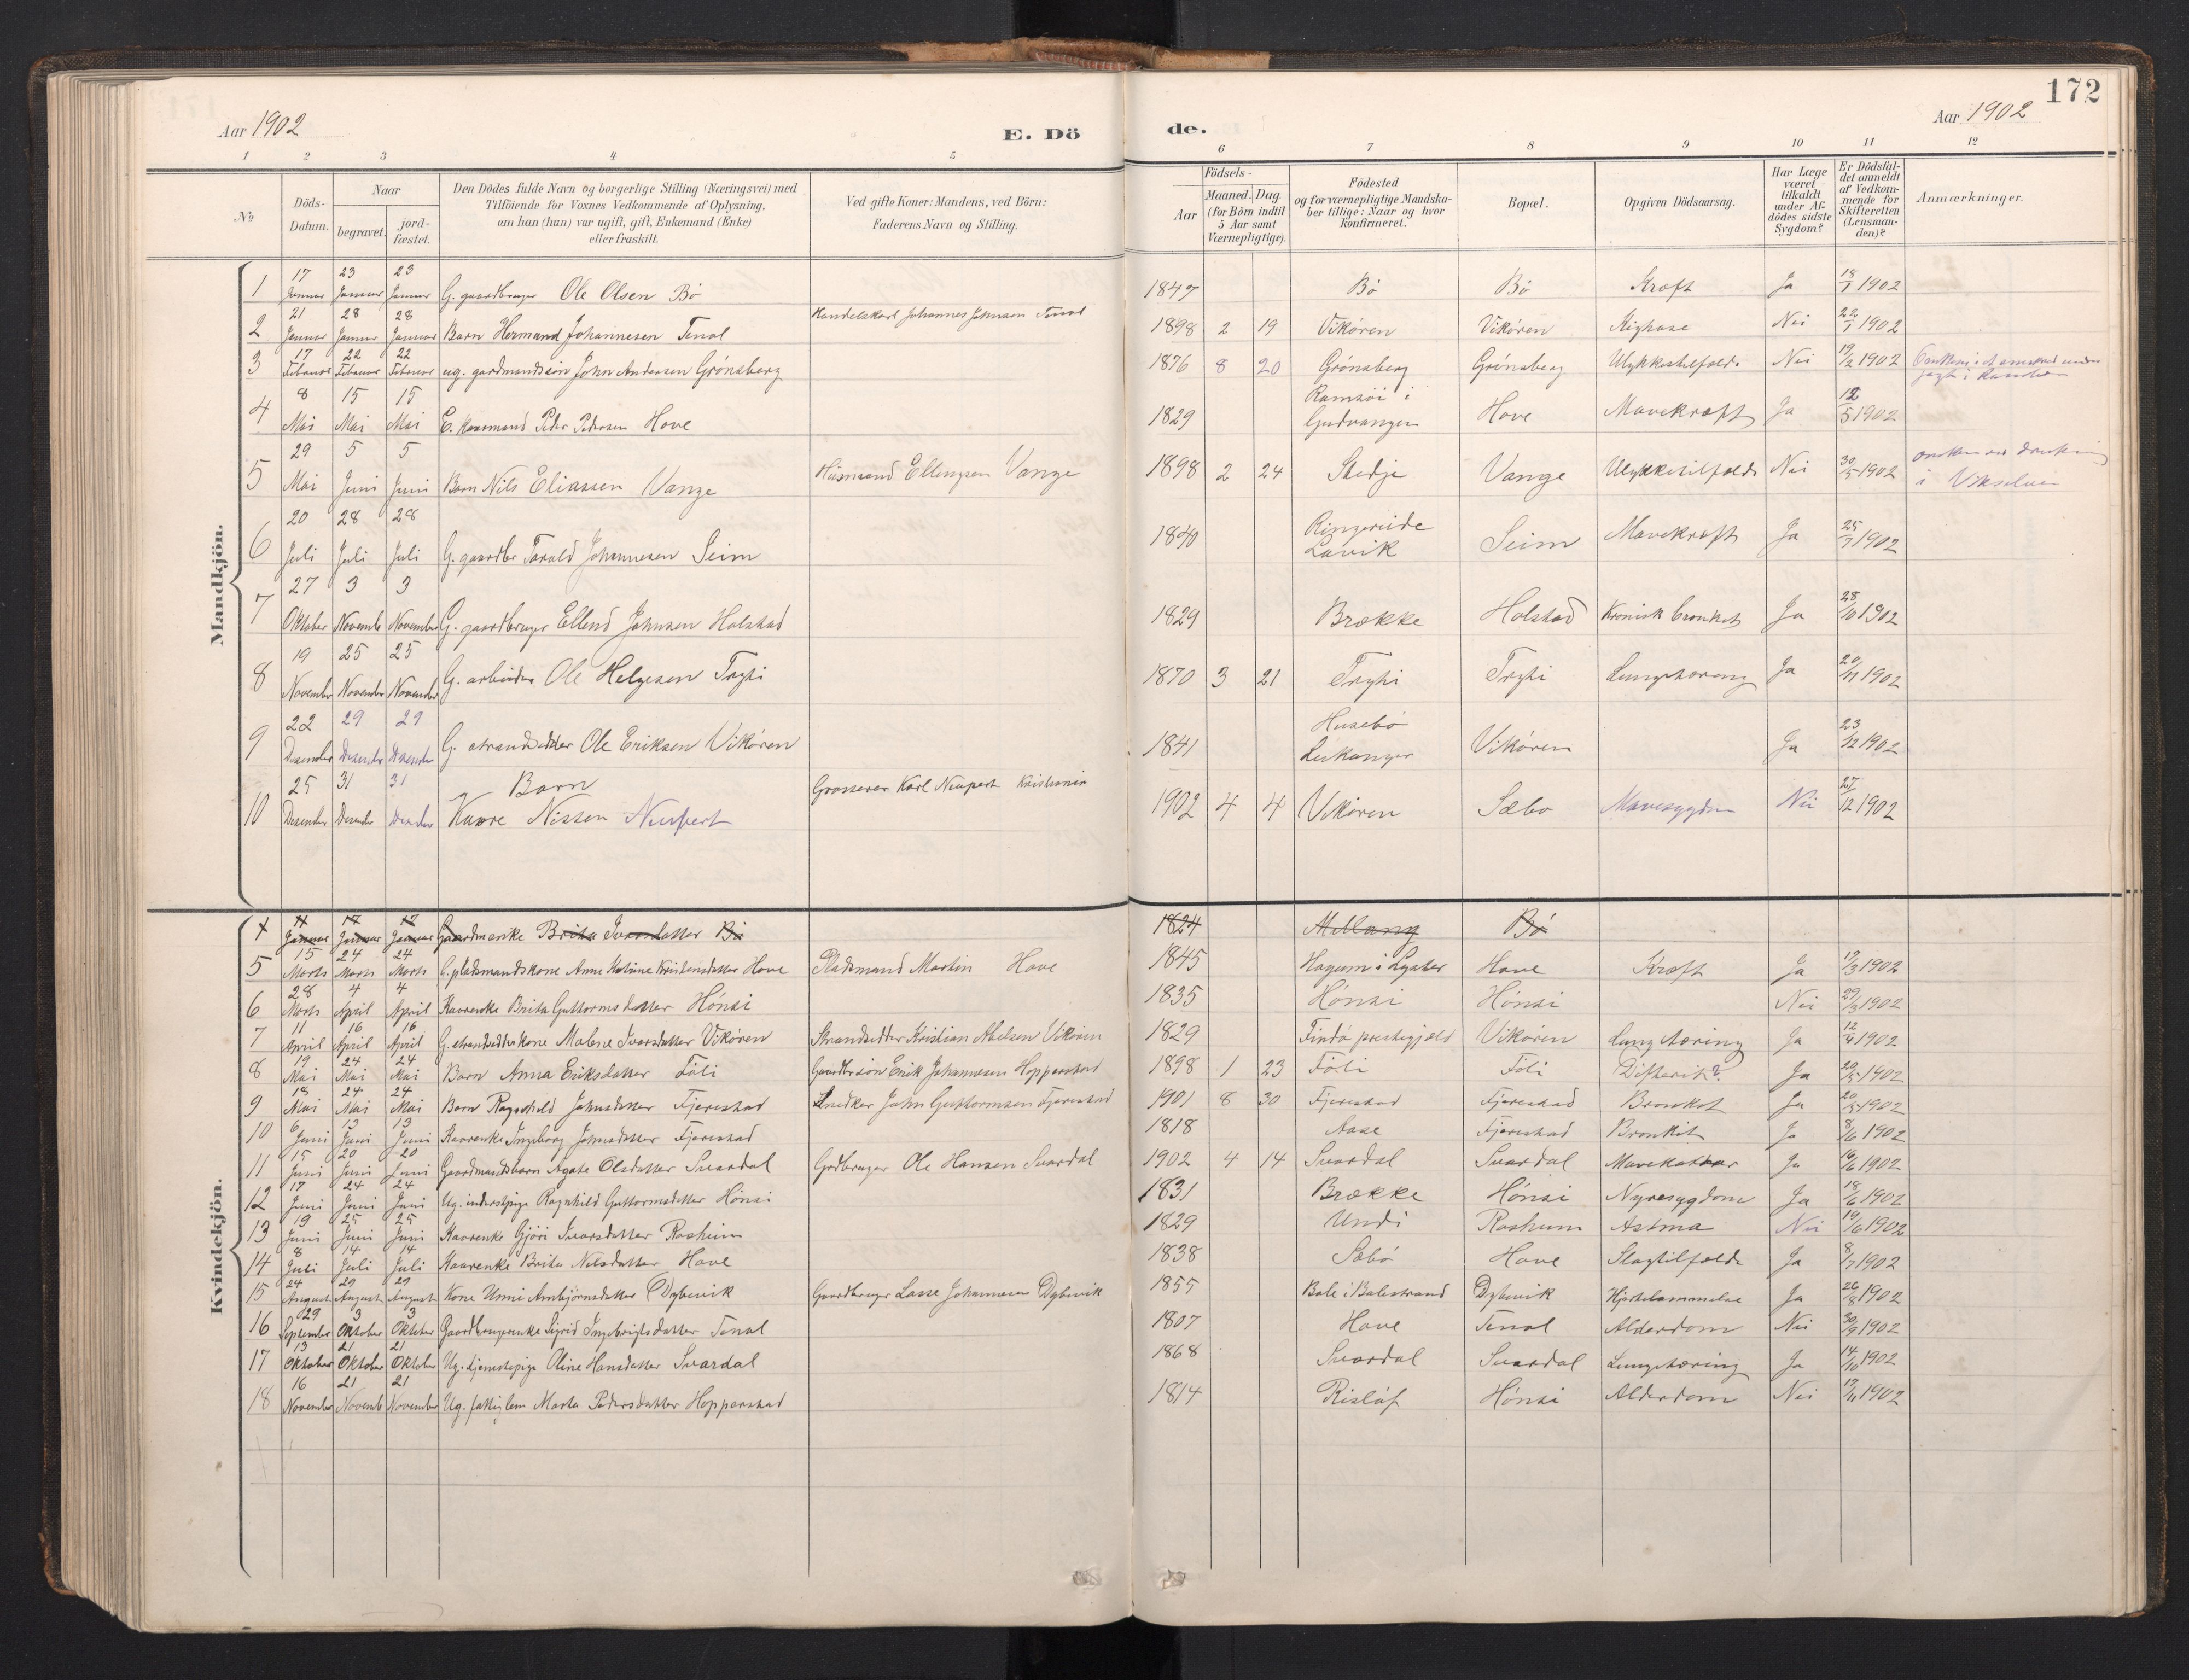 172
Aar 1902
E. Dö
de.
Aar 1902
1 2 3 4 5 6 7 8 9 10 11 12
№
Döds-Datum.
Naar
begravet.
jord-fæstet.
Den Dödes fulde Navn og borgerlige Stilling (Næringsvei) med
Tilföiende for Voxnes Vedkommende af Oplysning,
om han (hun) var ugift, gift, Enkemand (Enke)
eller fraskilt.
Ved gifte Koner: Mandens, ved Börn:
Faderens Navn og Stilling.
Födsels-
Aar
Maaned. Dag.
(for Börn indtil
5 Aar samt
Værnepligtige).
Födested
og for værnepligtige Mandska-
ber tillige: Naar og hvor
konfirmeret.
Bopæl.
Opgiven Dödsaarsag.
Har Læge
været
tilkaldt
under Af-
dödes sidste
Sygdom?
Er Dödsfal-
det anmeldt
af Vedkom-
mende for
Skifteretten
(Lensman-
den)?
Anmærkninger.
Mandkjön.
1 17 Januar 23 Januar 23 Januar G. gaardbruger Ole Olsen Bö 1847 Bö Bö Kræft Ja 18/1 1902
2 21 Januar 28 Januar 28 Januar Barn Hermund Johannesen Tenol Handelskarl Johannes Johnsen Tenol 1898 2 19 Vikören Vikören Kighoste Nei 22/1 1902
3 17 Februar 22 Februar 22 Februar ug. gardmandssön John Andersen Grönsberg 1876 8 20 Grönsberg Grönsberg Ulykkestilfælde Nei 19/2 1902
4 8 Mai 15 Mai 15 Mai E. Kaarmand Peder Pedersen Hove 1829 Ramsöi i Gudvangen Hove Mavekræft Ja 12/5 1902
5 29 Mai 5 Juni 5 Juni Barn Nils Eliassen Vange Husmand Ellingsen Vange 1898 2 24 Stedje Vange Ulykkestilfælde Nei 30/5 1902 i Vikselven
6 20 Juli 28 Juli 28 Juli G. gaardbr Torald Johannesen Seim 1840 Ringereide Lavik Seim Mavekræft Ja 25/7 1902
7 27 Oktober 3 Novemb 3 November G. gaardbruger Ellend Johnsen Holstad 1829 Brække Holstad Kronisk bronkit Ja 28/10 1902
8 19 November 25 November 25 November G. arbeider Ole Helgesen Tryti 1870 3 21 Tryti Tryti Lungetæring Ja 20/11 1902
9 22 Desember 29 Desember 29 Desember G. strandsidder Ole Eriksen Vikören 1841 Husebö Leikanger Vikören Ja 23/12 1902
10 25 Desember 31 Desember 31 Desember Barn Kaare Nissen Neupert Grosserer Karl Neupert Kristiania 1902 4 4 Vikören Sæbo Mavesygdom Nei 27/12 1902
Kvindekjön.
4 11 Januar 17 Januar 17 Januar Gaardmenke Brita Ivarsdatter Bö 1824 Bö
5 15 Marts 24 Marts 24 Marts G. pladsmandskone Anne Katrine Kristensdatter Hove Pladsmand Martin Hove 1845 Hagum i Lyster Hove Kræft Ja 17/3 1902
6 28 Marts 4 April 4 April Kaarenke Brita Guttormsdatter Hönsi 1835 Hönsi Hönsi Nei 29/3 1902
7 11 April 16 April 16 April G. strandsidderkone Malene Ivarsdatter Vikören Strandsidder Kristian Abelsen Vikören 1829 Findö prestegjæld Vikören Lungetæring Ja 12/4 1902
8 19 Mai 24 Mai 24 Mai Barn Anna Eriksdatter Föli Gaardbrsön Erik Johannesen Hopperstad 1898 1 23 Föli Föli Difterit? Ja 20/5 1902
9 18 Mai 24 Mai 24 Mai Barn Ragnhild Johnsdatter Fjærestad Snedker John Guttormsen Fjærestad 1901 8 30 Fjærestad Fjærestad Bronkit Ja 20/5 1902
10 6 Juni 13 Juni 13 Juni Kaarenke Ingeborg Johnsdatter Fjærestad 1818 Aase Fjærestad Bronkit Ja 8/6 1902
11 15 Juni 20 Juni 20 Juni Gaardmandsbarn Agate Olsdatter Svardal Grdbruger Ole Hansen Svardal 1902 4 14 Svardal Svardal Mavekatar Ja 16/6 1902
12 17 Juni 24 Juni 24 Juni Ug. inderstpige Ragnhild Guttormsdatter Hönsi 1831 Brække Hönsi Nyresygdom Ja 18/6 1902
13 19 Juni 25 Juni 25 Juni Kaarenke Gjöri Ivarsdatter Rosheim 1829 Undi Roshum Astma Nei 19/6 1902
14 8 Juli 14 Juli 14 Juli Kaarenke Brita Nilsdatter Hove 1838 Sæbö Hove Slagtilfælde Ja 8/7 1902
15 24 August 29 August 29 August Kone Unni Ambjörnsdatter Dybevik Gaardbruger Lasse Johannesen Dybevik 1855 Bale i Balestrand Dybevik Hjertelammelse Ja 26/8 1902
16 29 September 3 Oktober 3 Oktober Gaardbrugerenke Sigrid Ingebrigtsdatter Tenol 1807 Hove Tenol Alderdom Nei 30/9 1902
17 13 Oktober 21 Oktober 21 Oktober Ug. tjenestepige Oline Hansdatter Svardal 1868 Svardal Svardal Lungetæring Ja 14/10 1902
18 16 November 21 Novemb 21 November Ug. fattiglem Marta Pedersdatter Hopperstad 1814 Rislöf Hönsi Alderdom Nei 17/11 1902